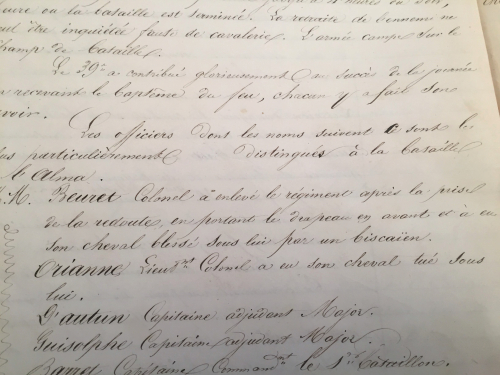 jusqu'à 4 heures du soir,
heure où la bataille est terminée. La retraite de l'ennemi ne
peut être inquiétée faute de cavalerie. L'armée campe sur le
champ de bataille.
Le 39e a contribué glorieusement au succès de la journée
en recevant le baptême du feu, chacun y a fait son
devoir.
Les officiers dont les noms suivent se sont le
plus particulièrement distingués à la bataille
de l'Alma.
M.M. Beuret Colonel a enlevé le régiment après la prise
de la redoute, en portant le drapeau en avant et a eu
son cheval blessé sous lui par un biscaïen.
Orianne Lieut.nt Colonel a eu son cheval tué sous
lui.
D'autun Capitaine adjudant Major.
Guisolphe Capitaine adjudant Major.
Capitaine Command.nt le 1er Bataillon.